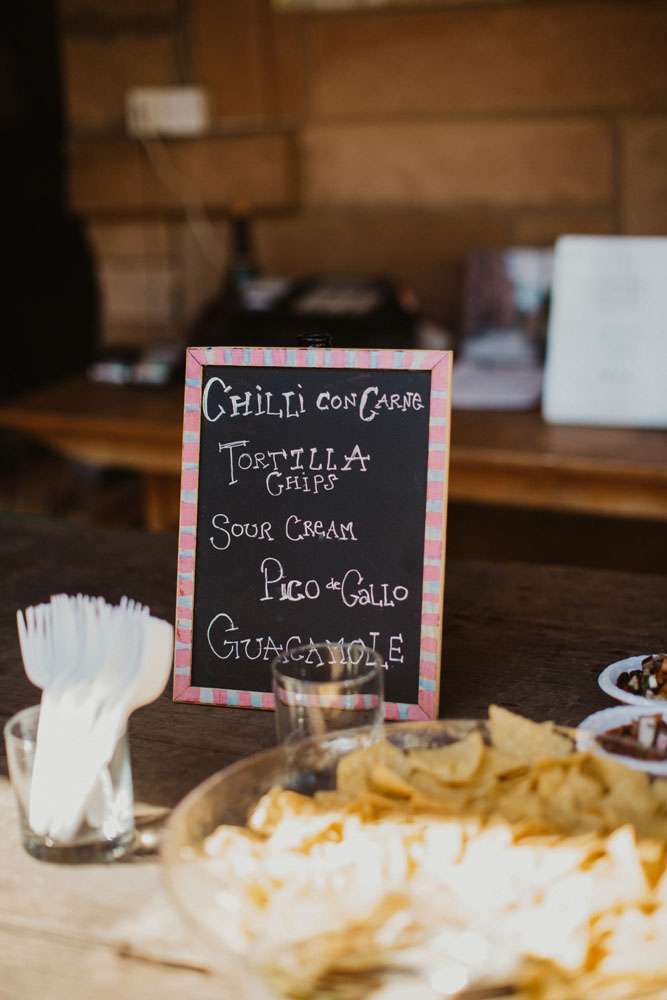 Chilli con Carne
Tortilla
Chips
Sour Cream
Pico de Gallo
Guacamole